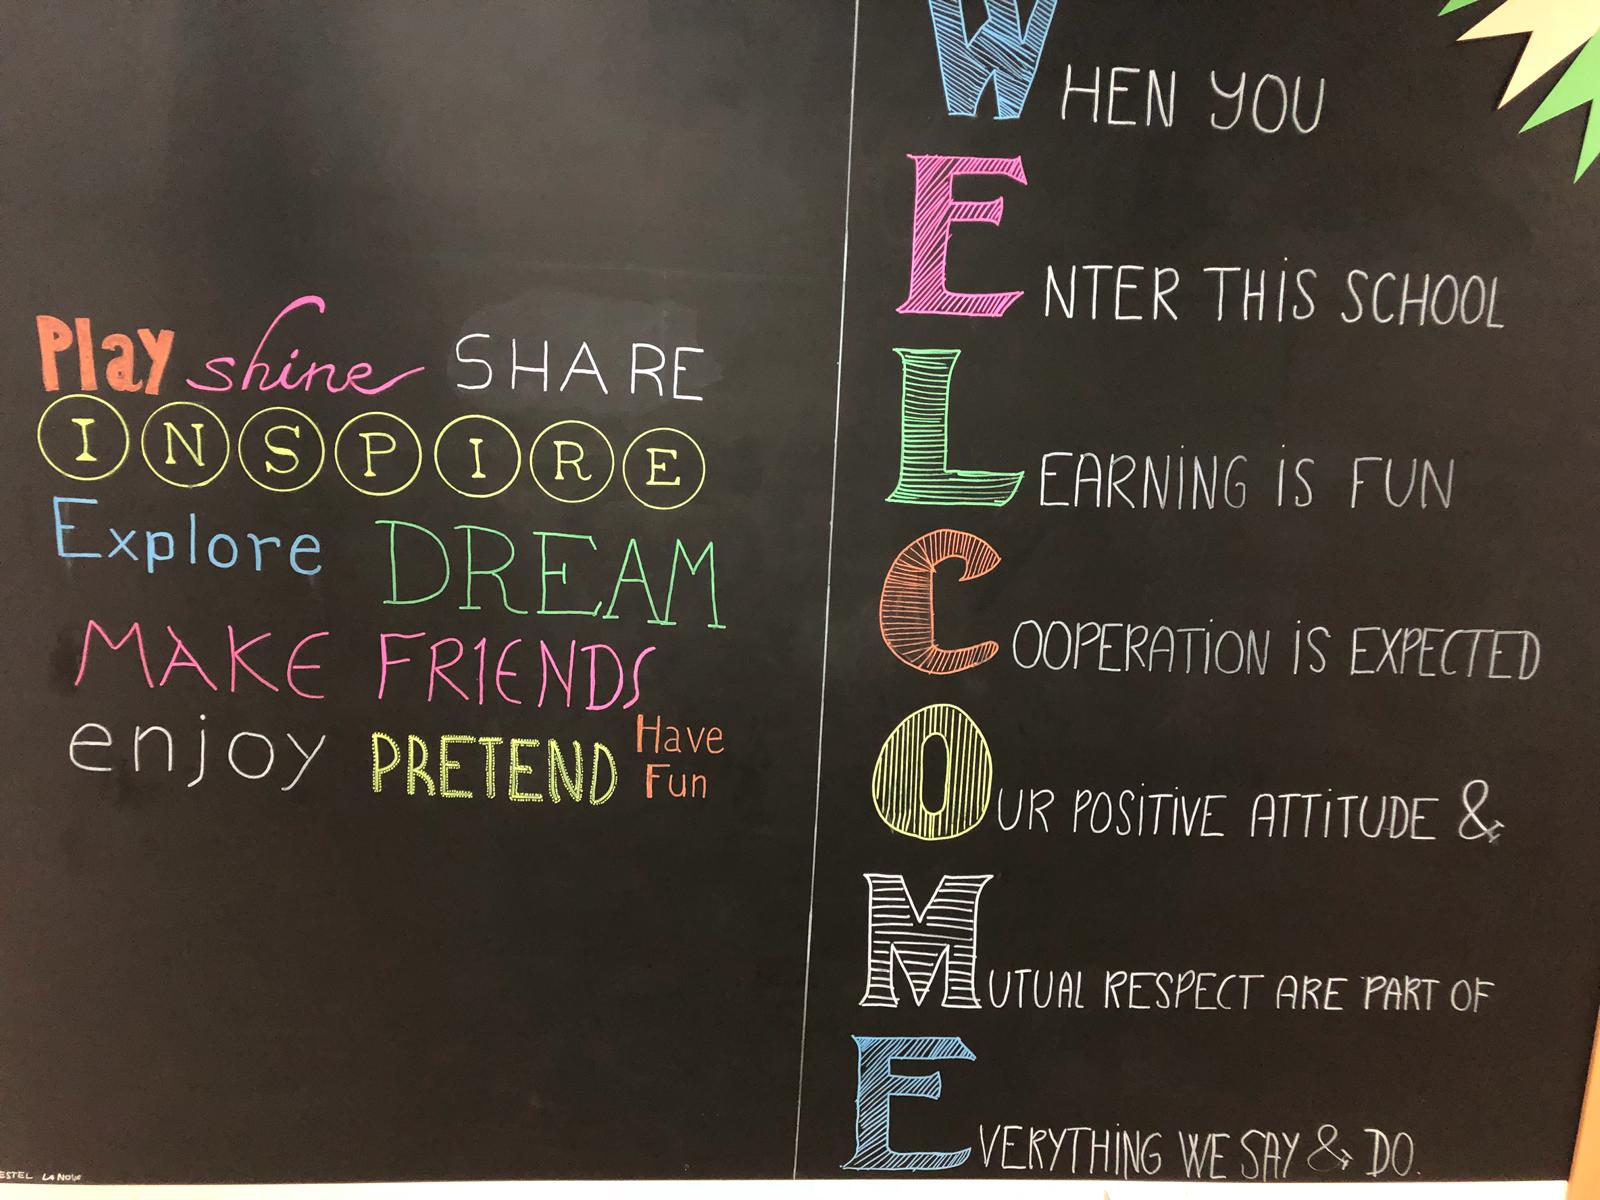 Play shine SHARE
INSPIRE
Explore DREAM
MAKE FRIENDS
enjoy PRETEND Have Fun
WHEN YOU
ENTER THiS SCHOOL
LEARNiNG iS FUN
COOPERATiON iS EXPECTED
OUR POSiTiVE ATTiTUDE &
MUTUAL RESPECT ARE PART OF
EVERYTHING WE SAY & DO.
ESTEL